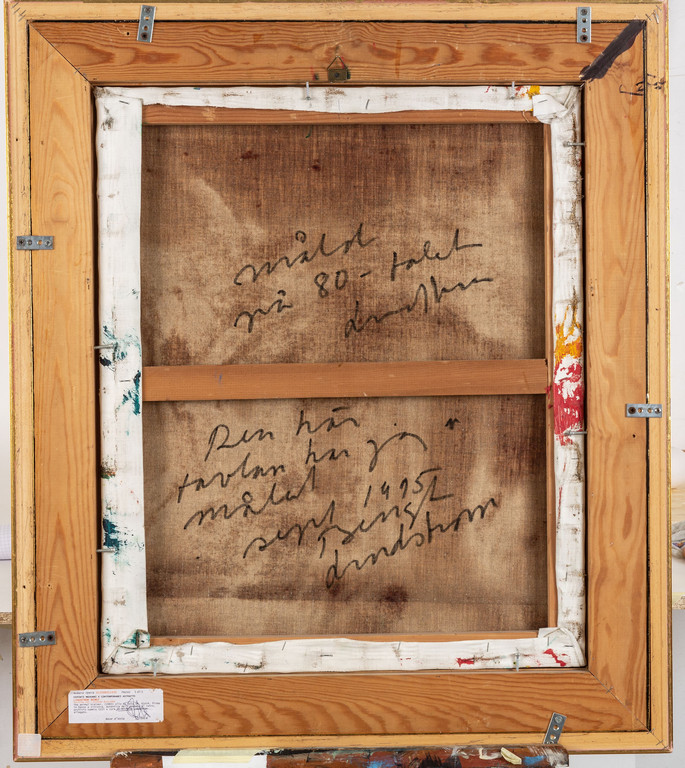 måld
på 80-talet
Lindström
Den här
tavlan har jag
målat
sept 1995
Bengt
Lindström